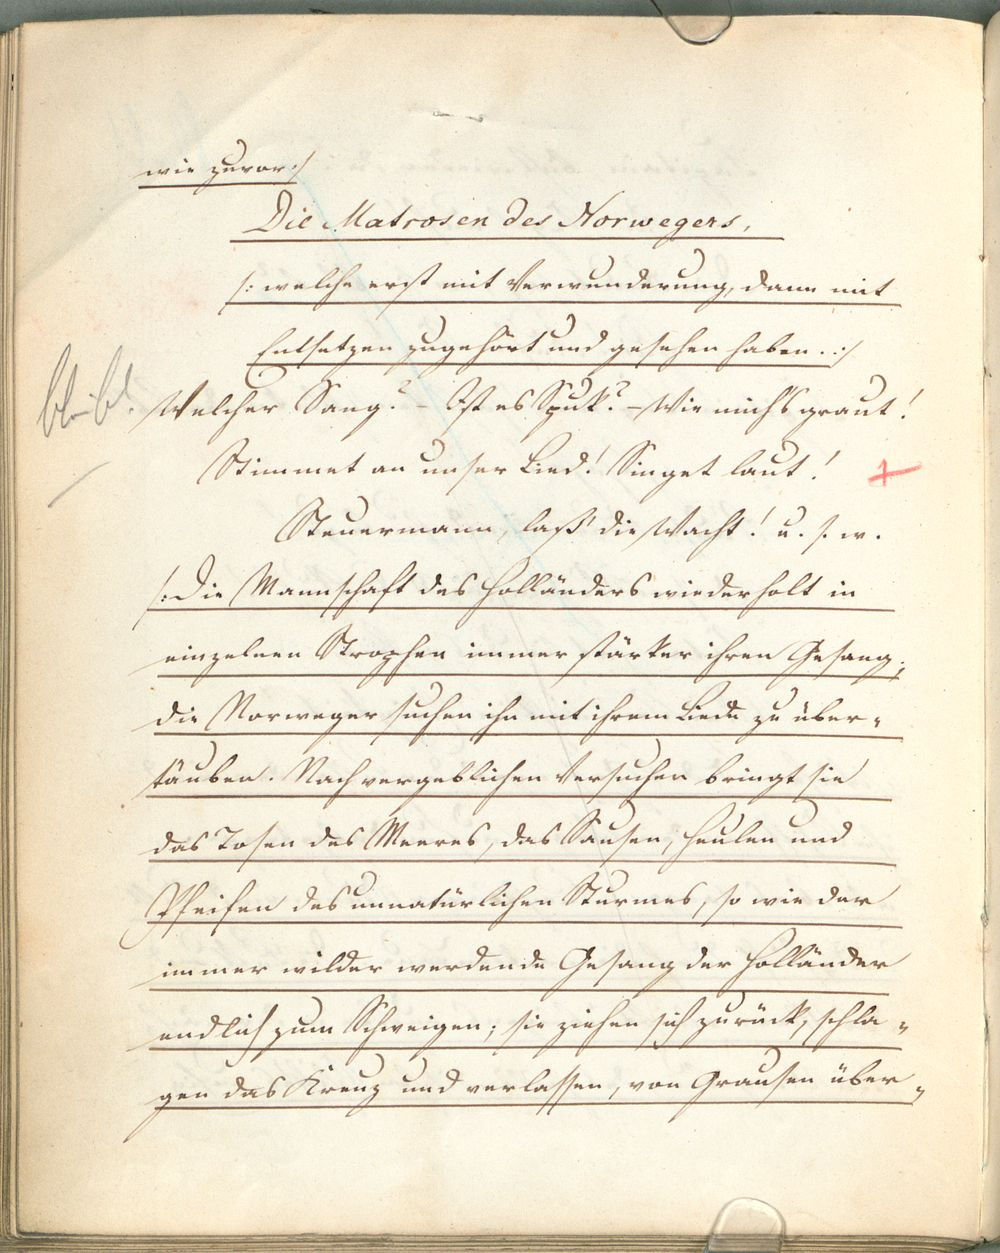 wie zuvor :/
Die Matrosen des Norwegers,
/: welche erst mit Verwunderung, dann mit
Entsetzen zugehört und gesehen haben. :/
bleibt.
Welcher Sang? – Ist es Spuk? – Wie mich's graut!
Stimmet an unser Lied! Singet laut!
Steuermann, laß' die Wacht! u. s. w.
/: Die Mannschaft des Holländers wiederholt in
einzelnen Strophen immer stärker ihren Gesang;
die Norweger suchen ihn mit ihrem Liede zu über-
täuben. Nach vergeblichen Versuchen bringt sie
das Tosen des Meeres, das Sausen, Heulen und
Pfeifen des unnatürlichen Sturmes, so wie der
immer wilder werdende Gesang der Holländer
endlich zum Schweigen; sie ziehen sich zurück, schla-
gen das Kreuz und verlassen, von Grausen über-